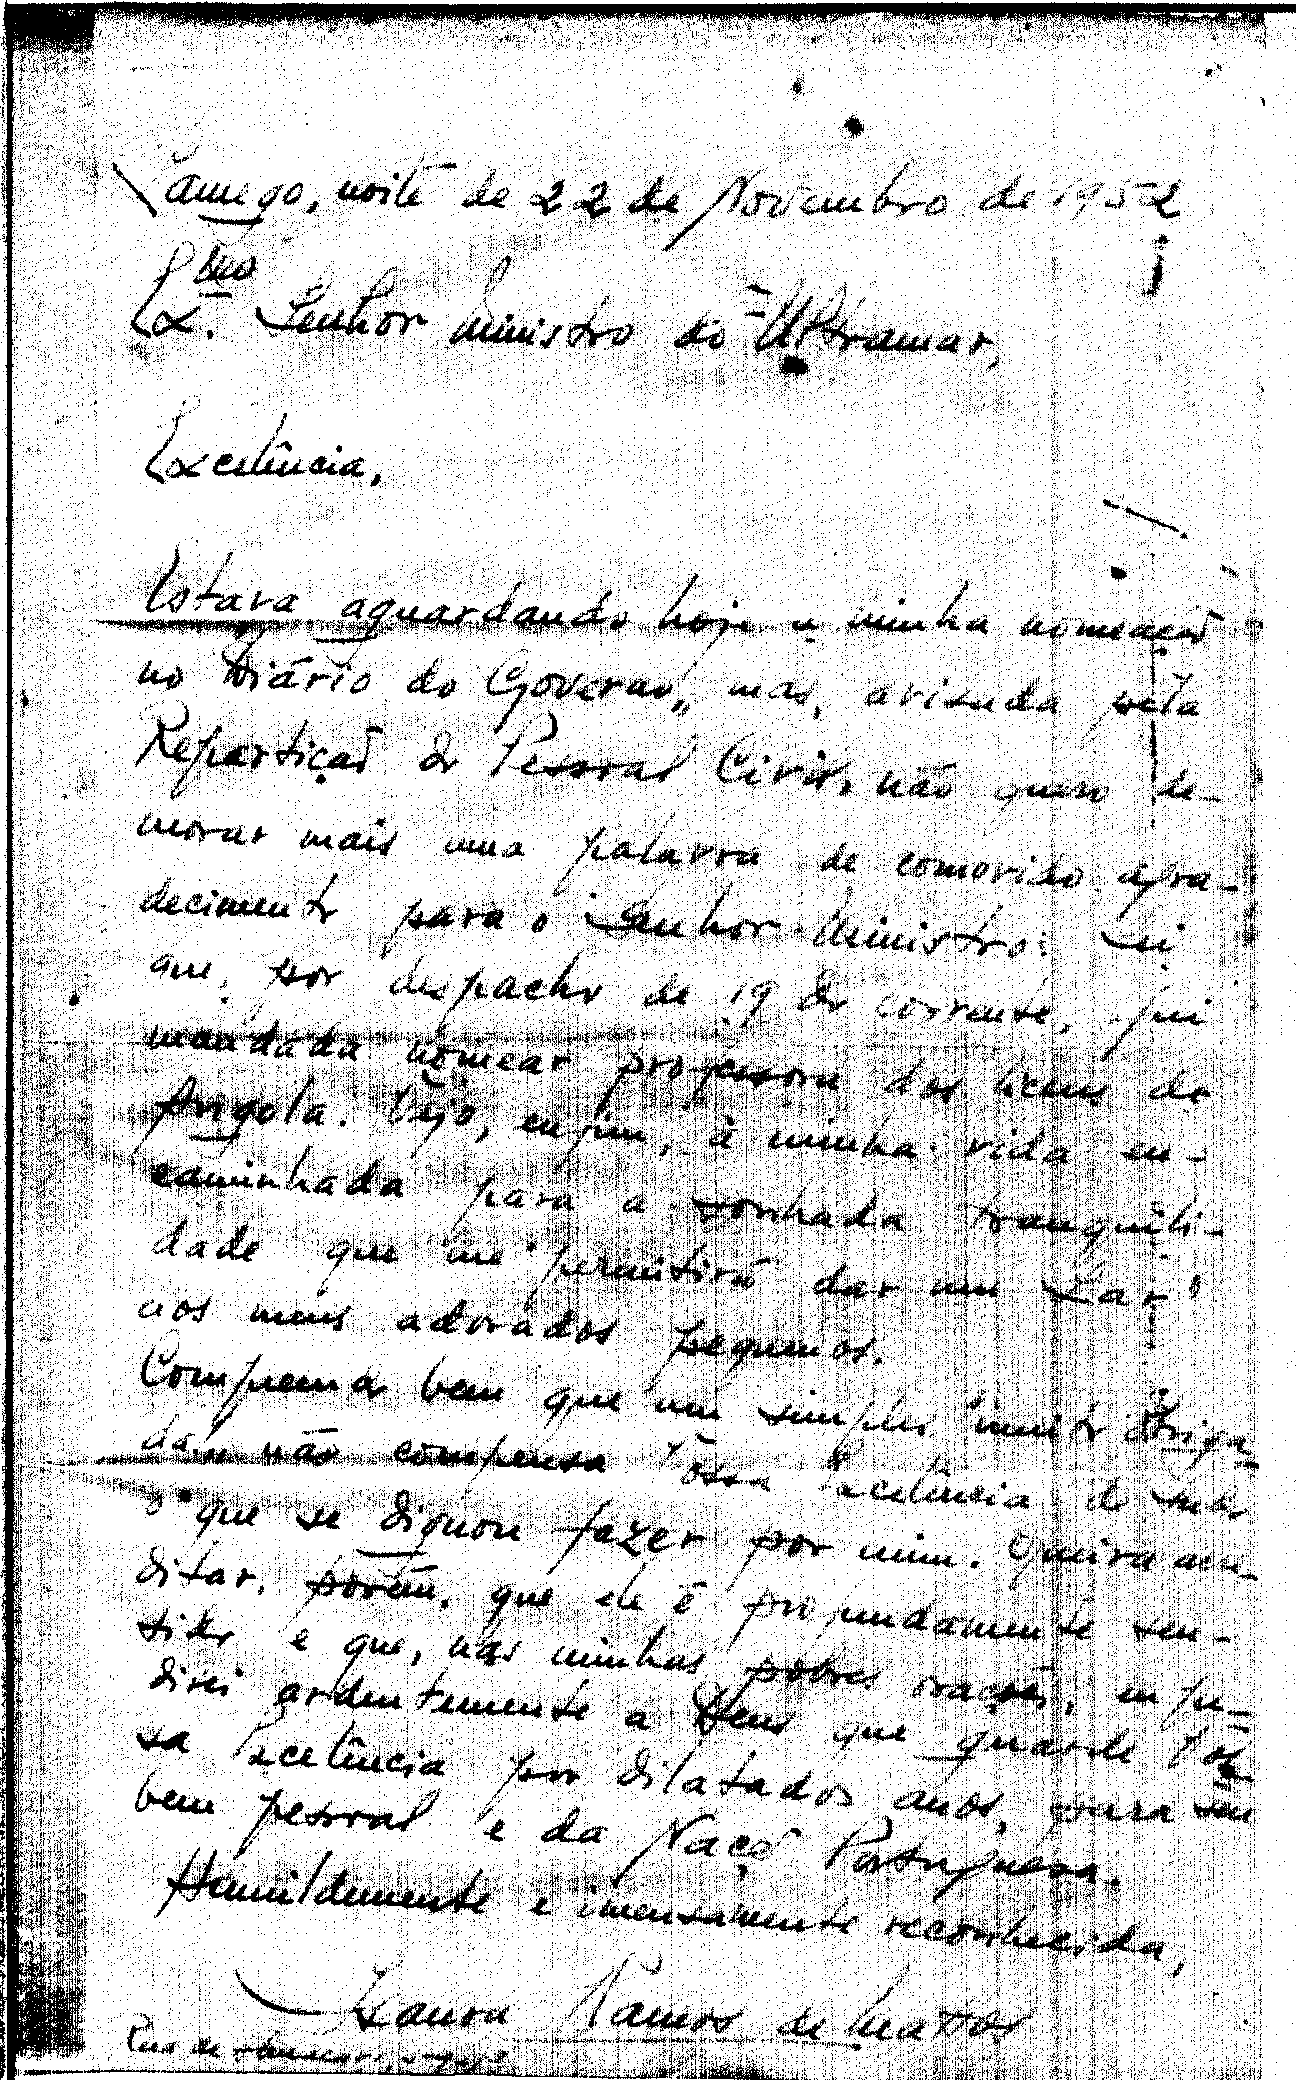 Lamego, noite de 22 de Novembro de 1952
Ex.mo Senhor Ministro do Ultramar,
Excelência,
Estava aguardando hoje a minha nomeação
no Diário do Governo, mas, avisada pela
Repartição do Pessoal Civil, não quero de-
morar mais uma palavra de comovido agra-
decimento para o Senhor Ministro: Sei
que, por despacho de 19 do corrente, fui
mandada nomear professora dos liceus de
Angola. Vejo, enfim, a minha vida en-
caminhada para a sonhada tranquili-
dade que me permitirá dar um Lar
aos meus adorados pequenos.
Compreendo bem que um simples muito obriga-
da não compensa Vossa Excelência de tudo
o que se dignou fazer por mim. Queira acre-
ditar, porém, que ele é profundamente sen-
tido e que, nas minhas pobres orações, eu pe-
direi ardentemente a Deus que guarde Vos-
sa Excelência por dilatados anos, para seu
bem pessoal e da Nação Portuguesa.
Humildemente e imensamente reconhecida,
Laura Ramos de Matos
Rua de